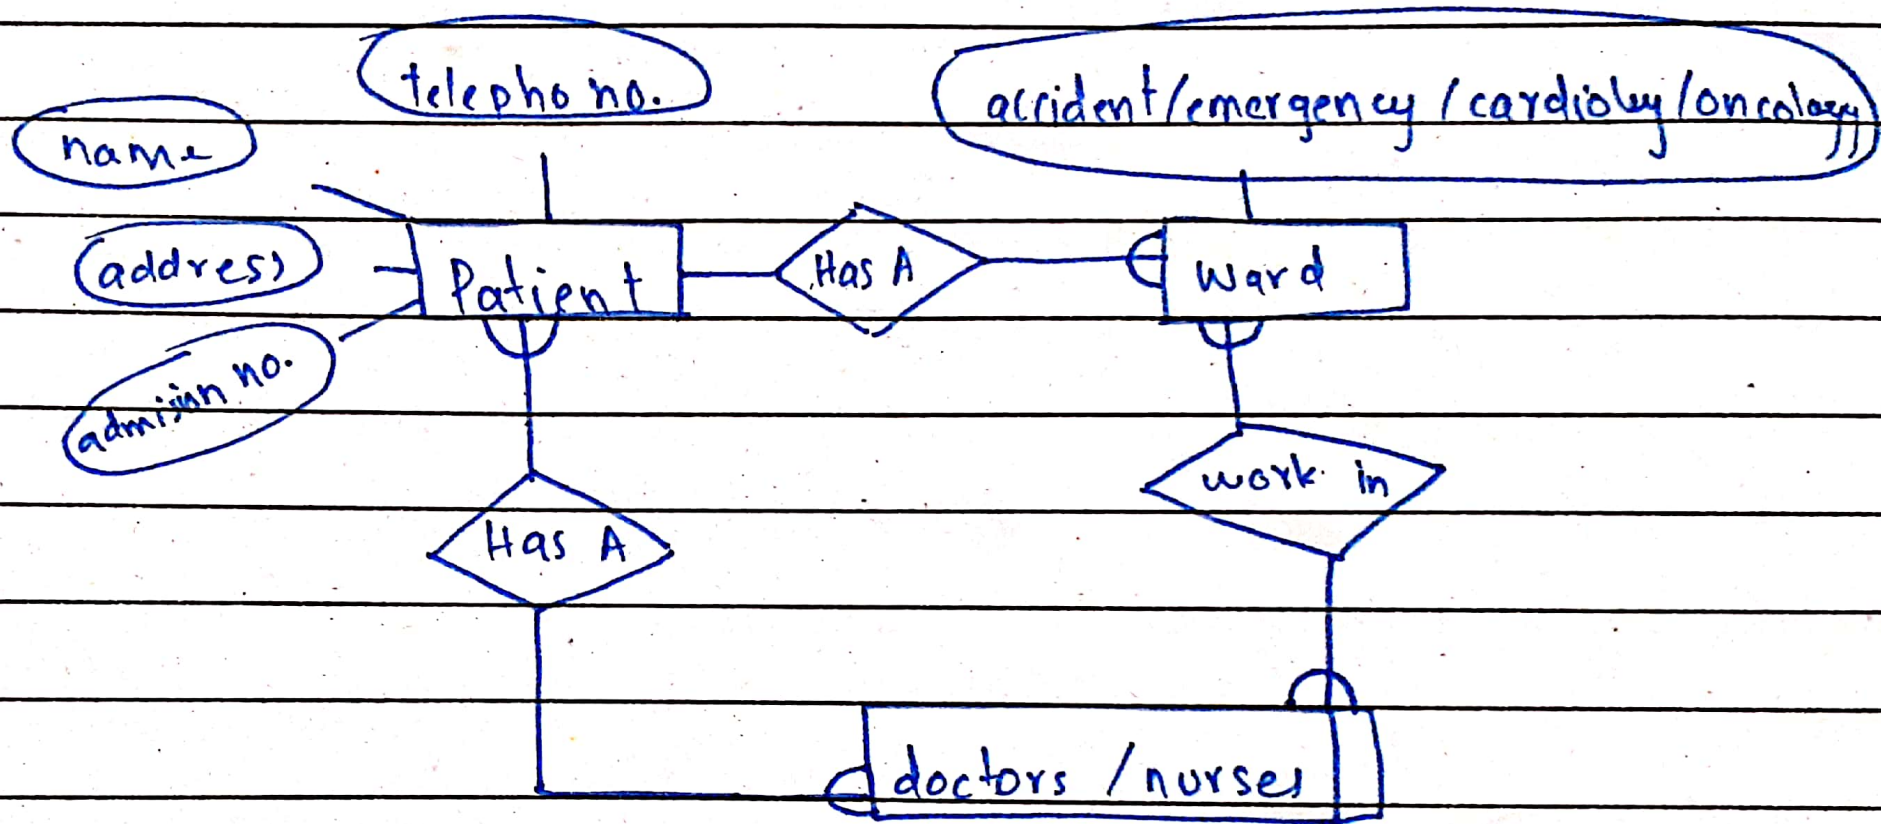 telepho no.
accident/emergency/cardioloy/oncology
name
address
Patient
Has A
Ward
admision no.
work in
Has A
doctors / nurses